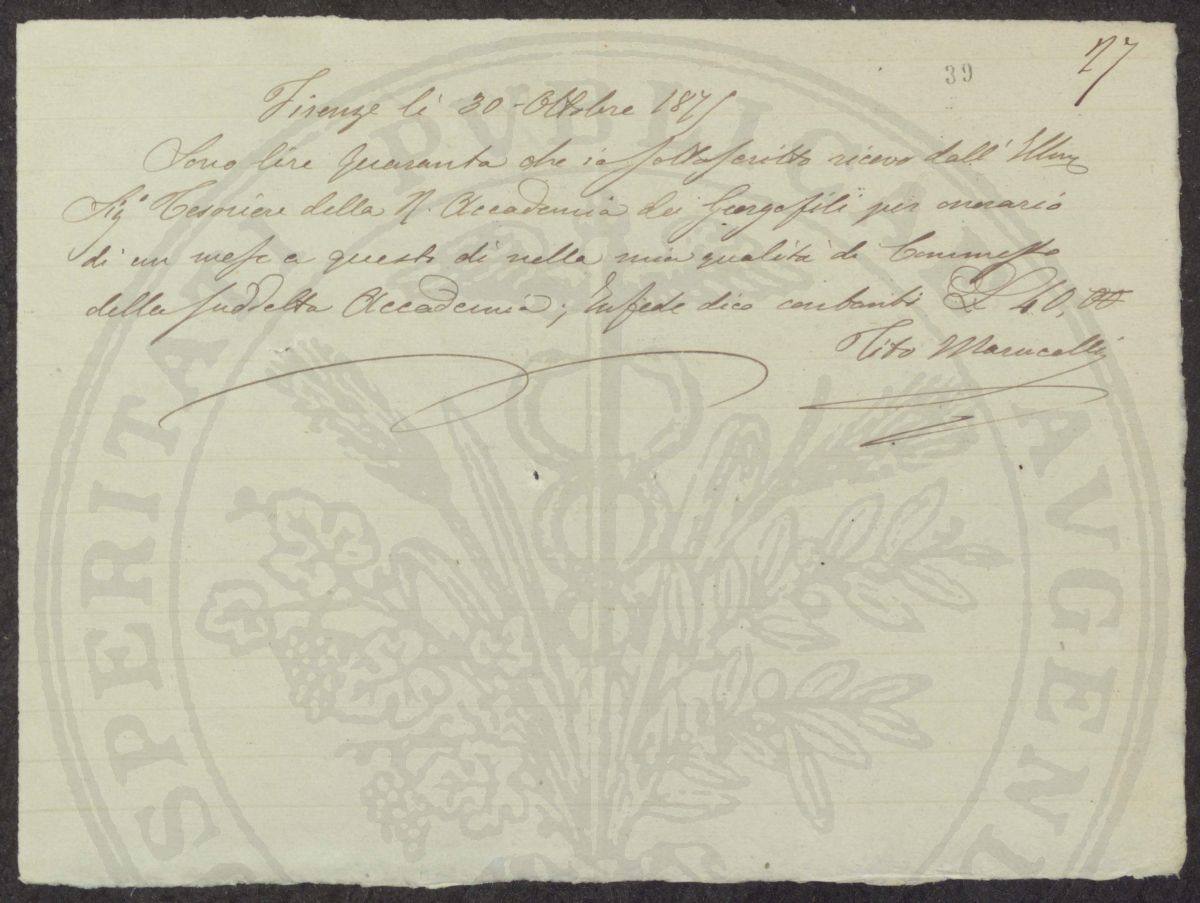 27
39
Firenze li 30 - Ottobre 1875
Sono lire quaranta che io sottoscritto ricevo dall' Illmo
Sigr Tesoriere della R. Accademia dei Georgofili per onorario
di un mese a questo di nella mia qualità di Commesso
della suddetta Accademia; In fede dico contanti £ 40, 00
Tito Marucelli
PROSPERITATI PVBLICAE AVGENDAE